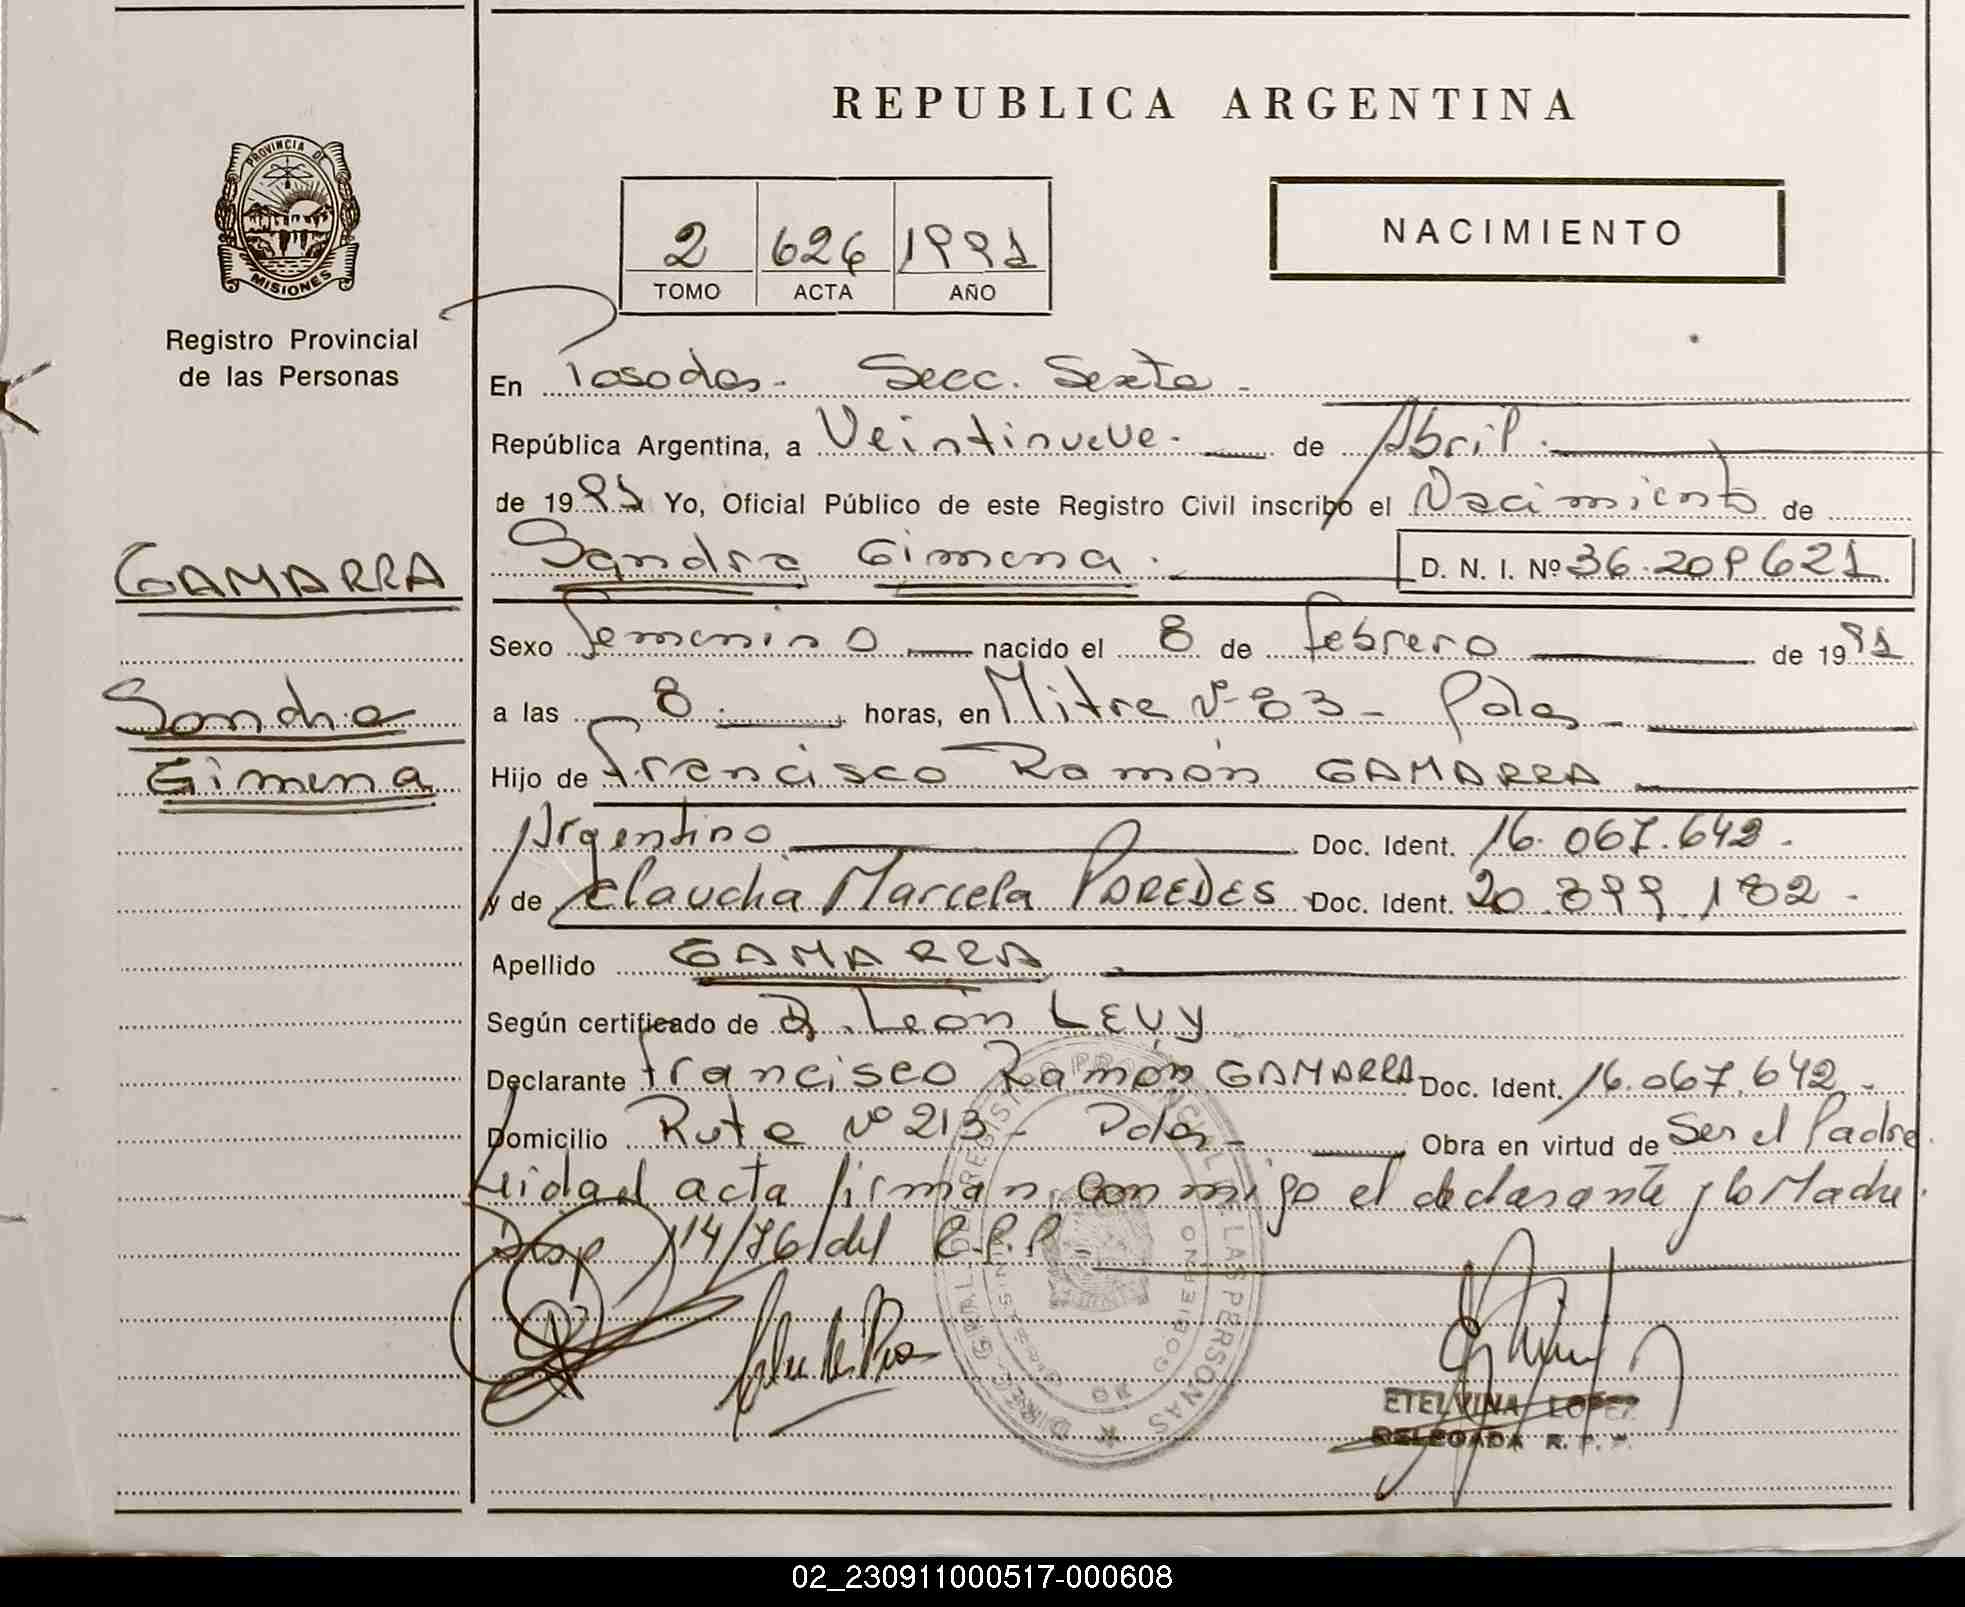 REPUBLICA ARGENTINA
PROVINCIA DE
MISIONES
Registro Provincial
de las Personas
2 626 1991
TOMO ACTA AÑO
NACIMIENTO
GAMARRA
Sandra
Gimena
En Posadas - Secc. Sexta -
República Argentina, a Veintinueve. de Abril.
de 1991 Yo, Oficial Público de este Registro Civil inscribo el Nacimiento de
Sandra Gimena. D. N. I. Nº 36.209.621
Sexo femenino nacido el 8 de febrero de 1991
a las 8. horas, en Mitre Nº 83 - Pdas -
Hijo de Francisco Ramón GAMARRA
Argentino Doc. Ident. 16.067.642.
y de Claudia Marcela PAREDES Doc. Ident. 20.899.182.
Apellido GAMARRA
Según certificado de D. León LEVY
Declarante Francisco Ramón GAMARRA Doc. Ident. 16.067.642.
Domicilio Ruta Nº 213 - Pdas - Obra en virtud de Ser el Padre.
Leida el acta firman conmigo el declarante y la Madre.
Disp 14/76 del R.P.P
DIREC. GRAL. DEL REGISTRO PROVINCIAL DE LAS PERSONAS
GOBIERNO
ETELVINA LOPEZ
DELEGADA R. P. P.
02_230911000517-000608